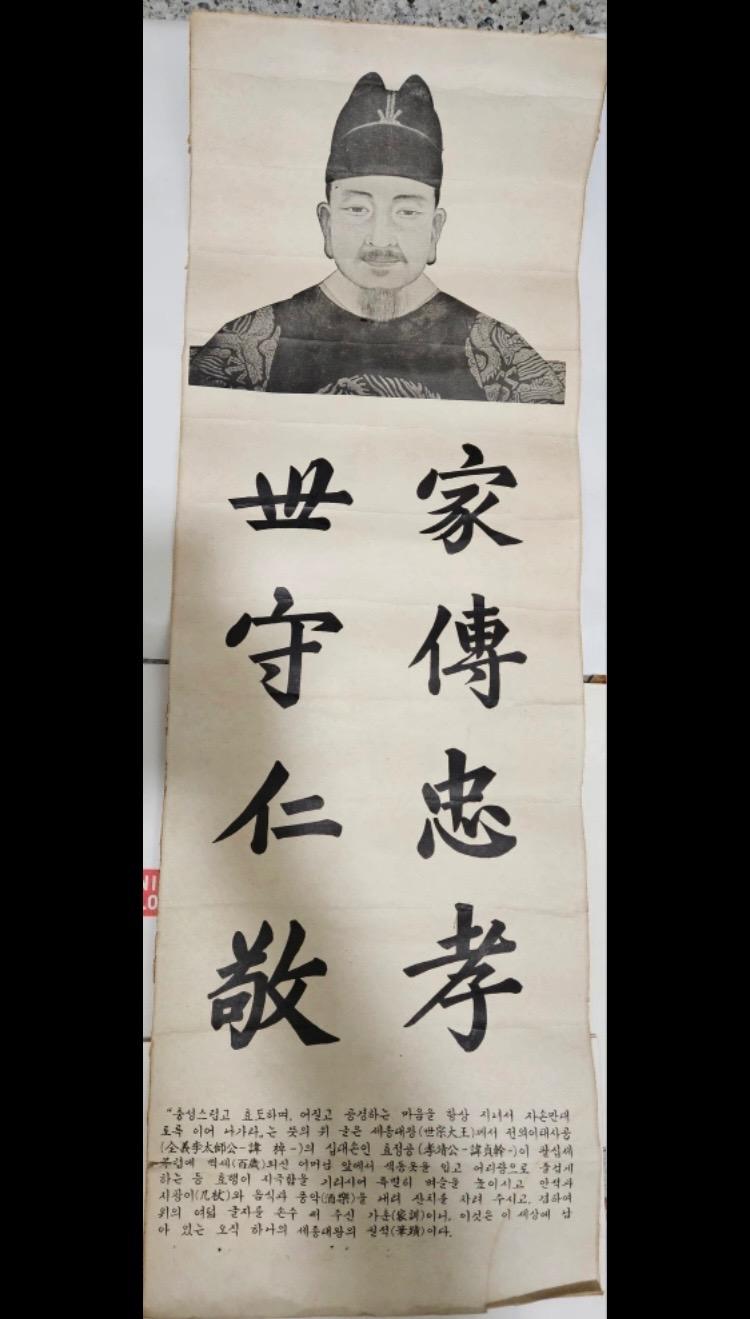 家傳忠孝
世守仁敬
"충성스럽고 효도하며, 어질고 공경하는 마음을 항상 지녀서 자손만대
토록 이어 나가라„는 뜻의 위 글은 세종대왕(世宗大王)께서 전의이태사공
(全義李太師公-諱 棹-)의 십대손인 효정공(孝靖公-諱貞幹-)이 팔십세
무렵에 백세(百歲)되신 어머님 앞에서 색동옷을 입고 어리광으로 즐겁게
하는 등 효행이 지극함을 기리시어 특별히 벼슬을 높이시고 안석과
지팡이(几杖)와 음식과 풍악(酒樂)을 내려 잔치를 차려 주시고, 겸하여
위의 여덟 글자를 손수 써 주신 가훈(家訓)이니, 이것은 이 세상에 남
아 있는 오직 하나의 세종대왕의 필적(筆蹟)이다.
NI
.0